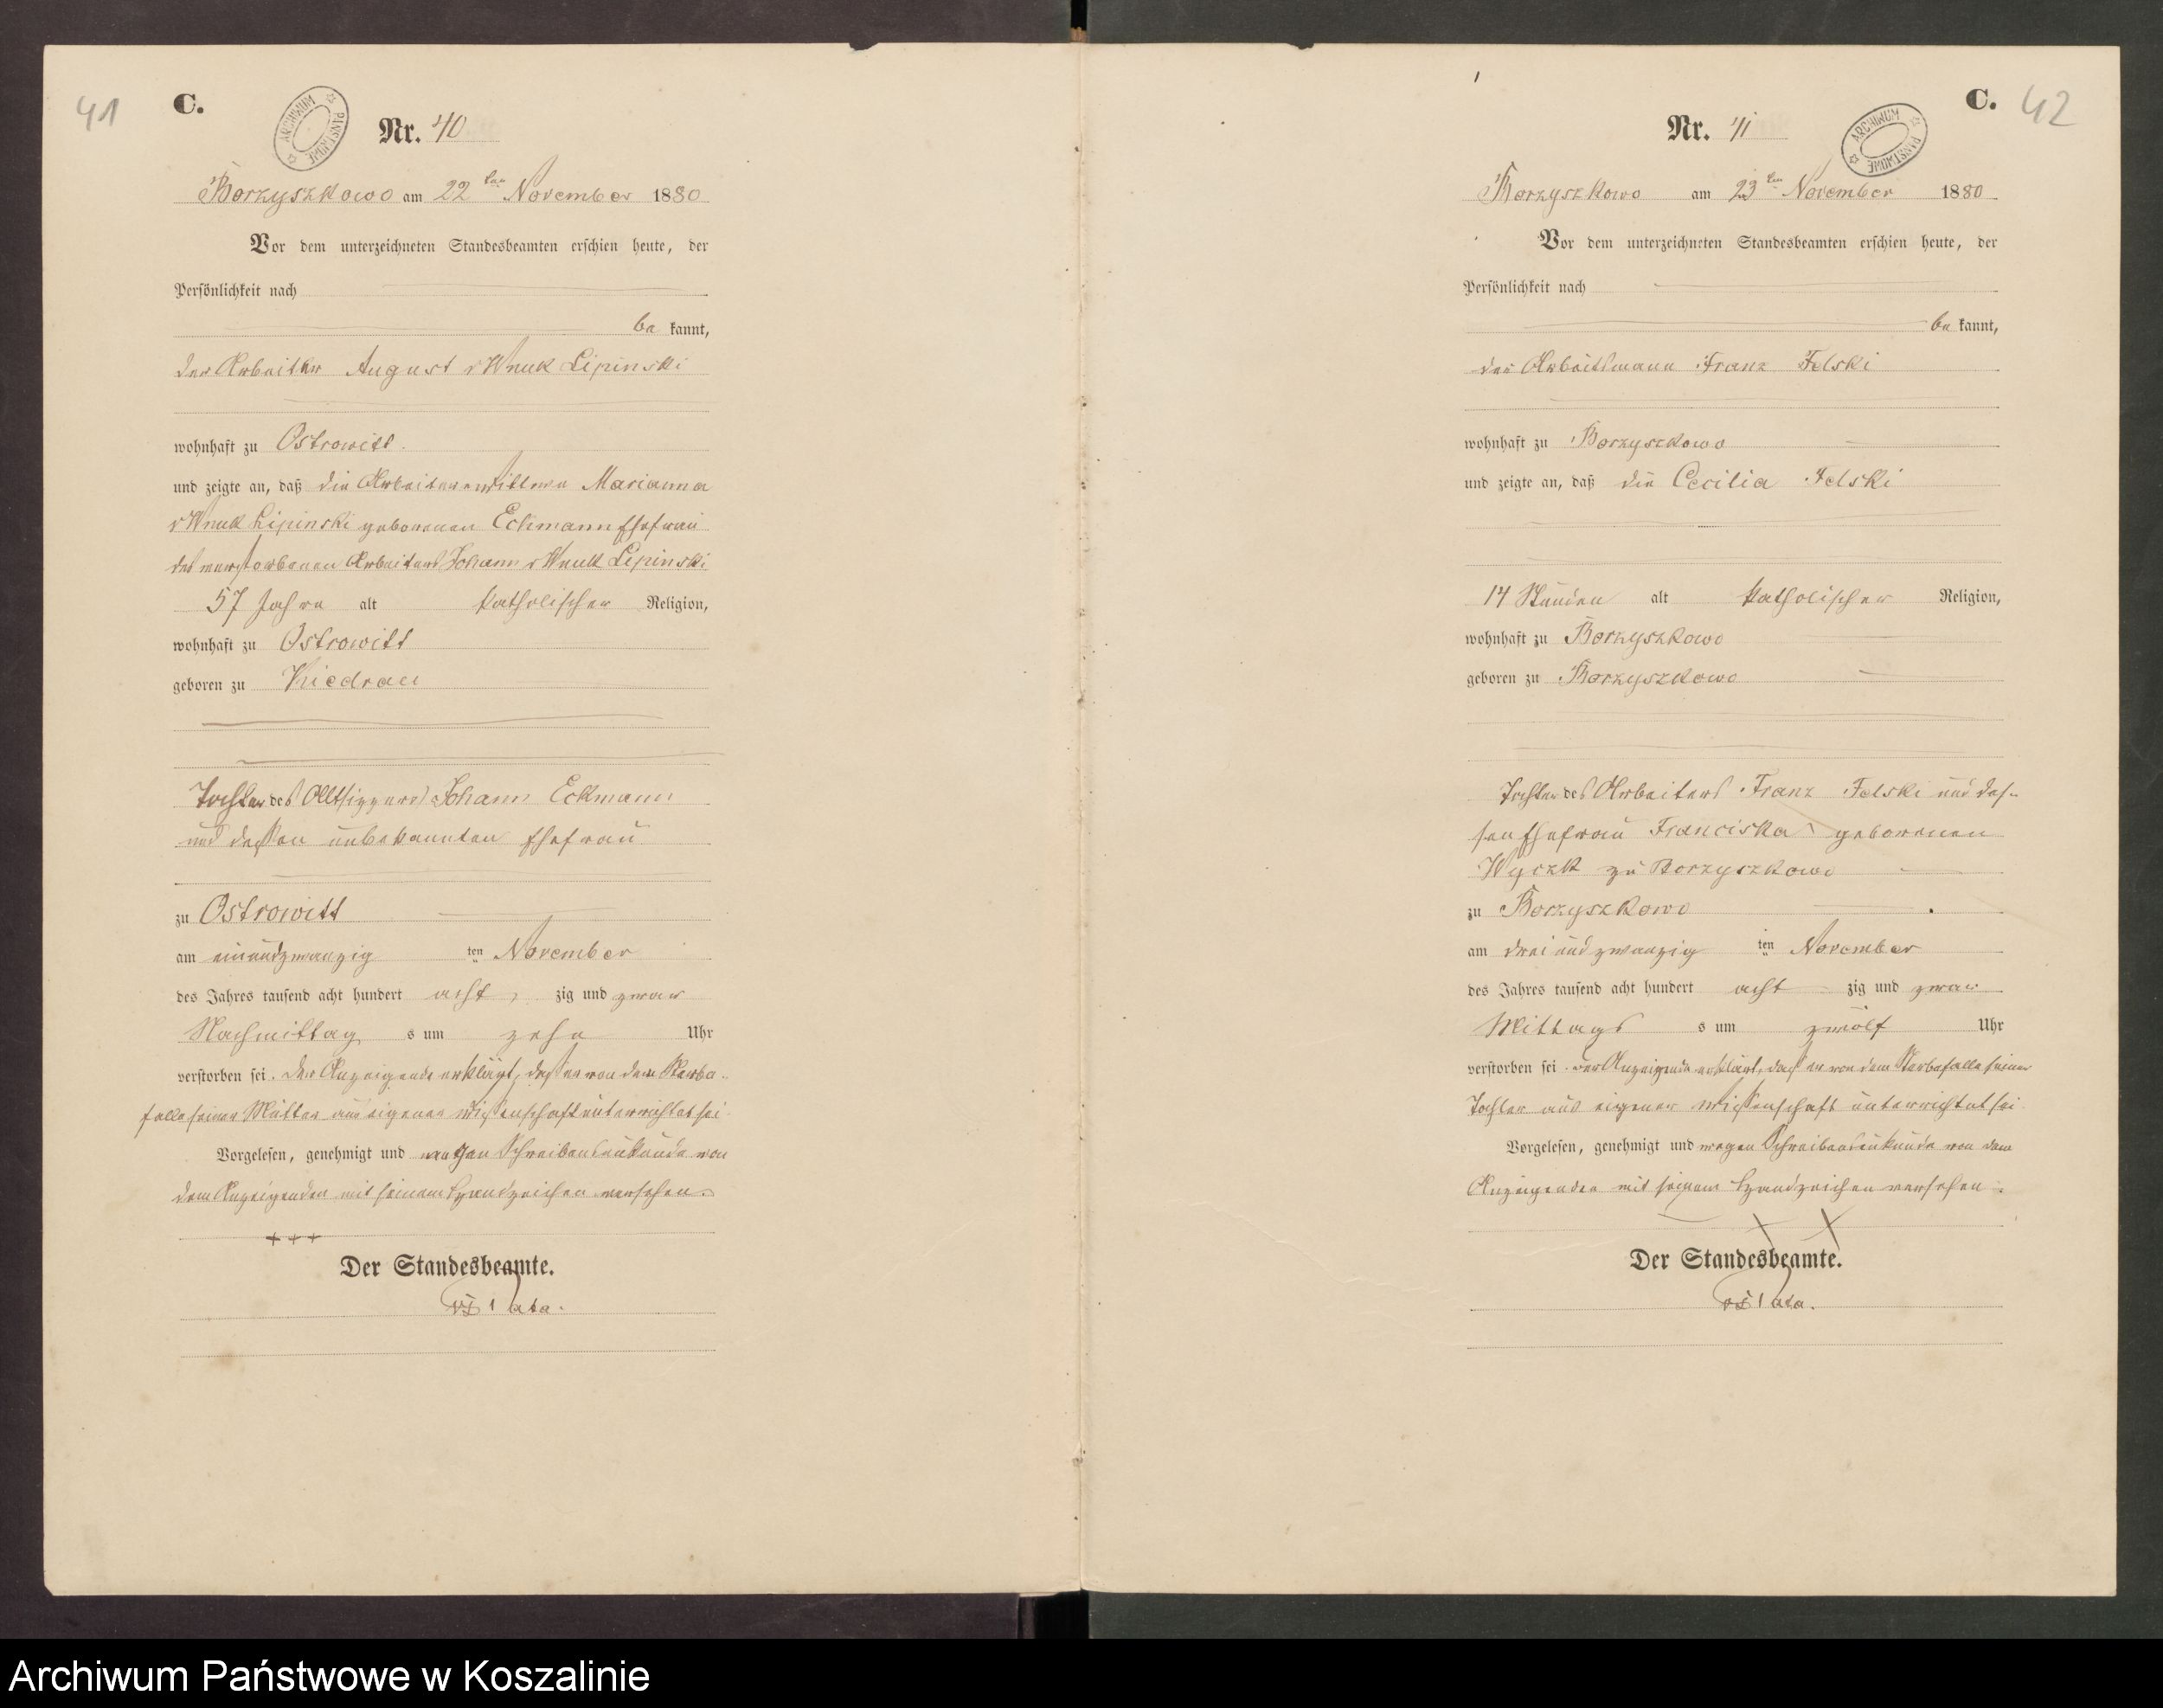 41
C.
ARCHIWUM PAŃSTWOWE
Nr. 40
Borzyszkowo am 22ten November 1880
Vor dem unterzeichneten Standesbeamten erschien heute, der
Persönlichkeit nach
be kannt,
der Arbeiter August v Wnuk Lipinski
wohnhaft zu Ostrowitt.
und zeigte an, daß die Arbeiterwittwe Marianna
v Wnuk Lipinski geborenen Eckmann Ehefrau
des verstorbenen Arbeiters Johann v Wnuk Lipinski
57 Jahre alt katholischer Religion,
wohnhaft zu Ostrowitt
geboren zu Kiedrau
Tochter des Altsitzers Johann Eckmann
und dessen unbekannten Ehefrau
zu Ostrowitt
am einundzwanzig ten November
des Jahres tausend acht hundert acht zig und zwar
Nachmittag s um zehn Uhr
verstorben sei. Der Anzeigende erklärt, daß er von dem Sterbe-
falle seiner Mutter aus eigener Wissenschaft unterrichtet sei.
Vorgelesen, genehmigt und wegen Schreibensunkunde von
dem Anzeigenden mit seinem Handzeichen versehen.
+++
Der Standesbeamte.
C. 42
ARCHIWUM PAŃSTWOWE
Nr. 41
Borzyszkowo am 23ten November 1880
Vor dem unterzeichneten Standesbeamten erschien heute, der
Persönlichkeit nach
be kannt,
der Arbeitsmann Franz Felski
wohnhaft zu Borzyszkowo
und zeigte an, daß die Cecilia Felski
14 Stunden alt katholischer Religion,
wohnhaft zu Borzyszkowo
geboren zu Borzyszkowo
Tochter des Arbeiters Franz Felski und des-
sen Ehefrau Franciska geborenen
Wyczk zu Borzyszkowo
zu Borzyszkowo
am dreiundzwanzig ten November
des Jahres tausend acht hundert acht zig und zwar
Mittags s um zwölf Uhr
verstorben sei. Der Anzeigende erklärt, daß er von dem Sterbefalle seiner
Tochter aus eigener Wissenschaft unterrichtet sei.
Vorgelesen, genehmigt und wegen Schreibensunkunde von dem
Anzeigenden mit seinem Handzeichen versehen.
X X
Der Standesbeamte.
Archiwum Państwowe w Koszalinie